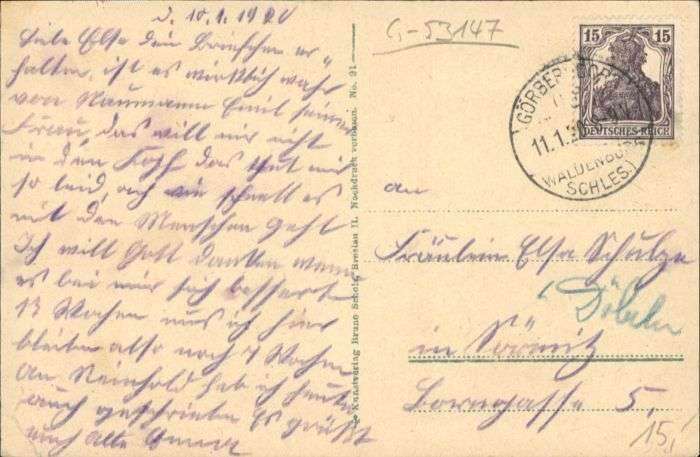 d. 10.1.1920
Liebe Else dein Briefchen er-
halten, ist es wirklich wahr
von Naumann Emil seine
Frau, das will mir nicht
in den Kopf das thut mir
so leid, ach wie schnell es
mit den Menschen geht
Ich will Gott danken wenn
es bei mir sich bessert
13 Wochen muß ich hier
bleiben also noch 7 Wochen
An Reinhold hab ich heute
auch geschrieben Es grüßt
Kunstverlag Bruno Scholz, Breslau II. Nachdruck verboten. No. 91
G-53147
15 15
DEUTSCHES REICH
GÖRBERSDORF
11.1.20
WALDENBURG
SCHLES.
an
Fräulein Else Schulze
Döbeln
in Sörmitz
Borngasse 5,
15,-